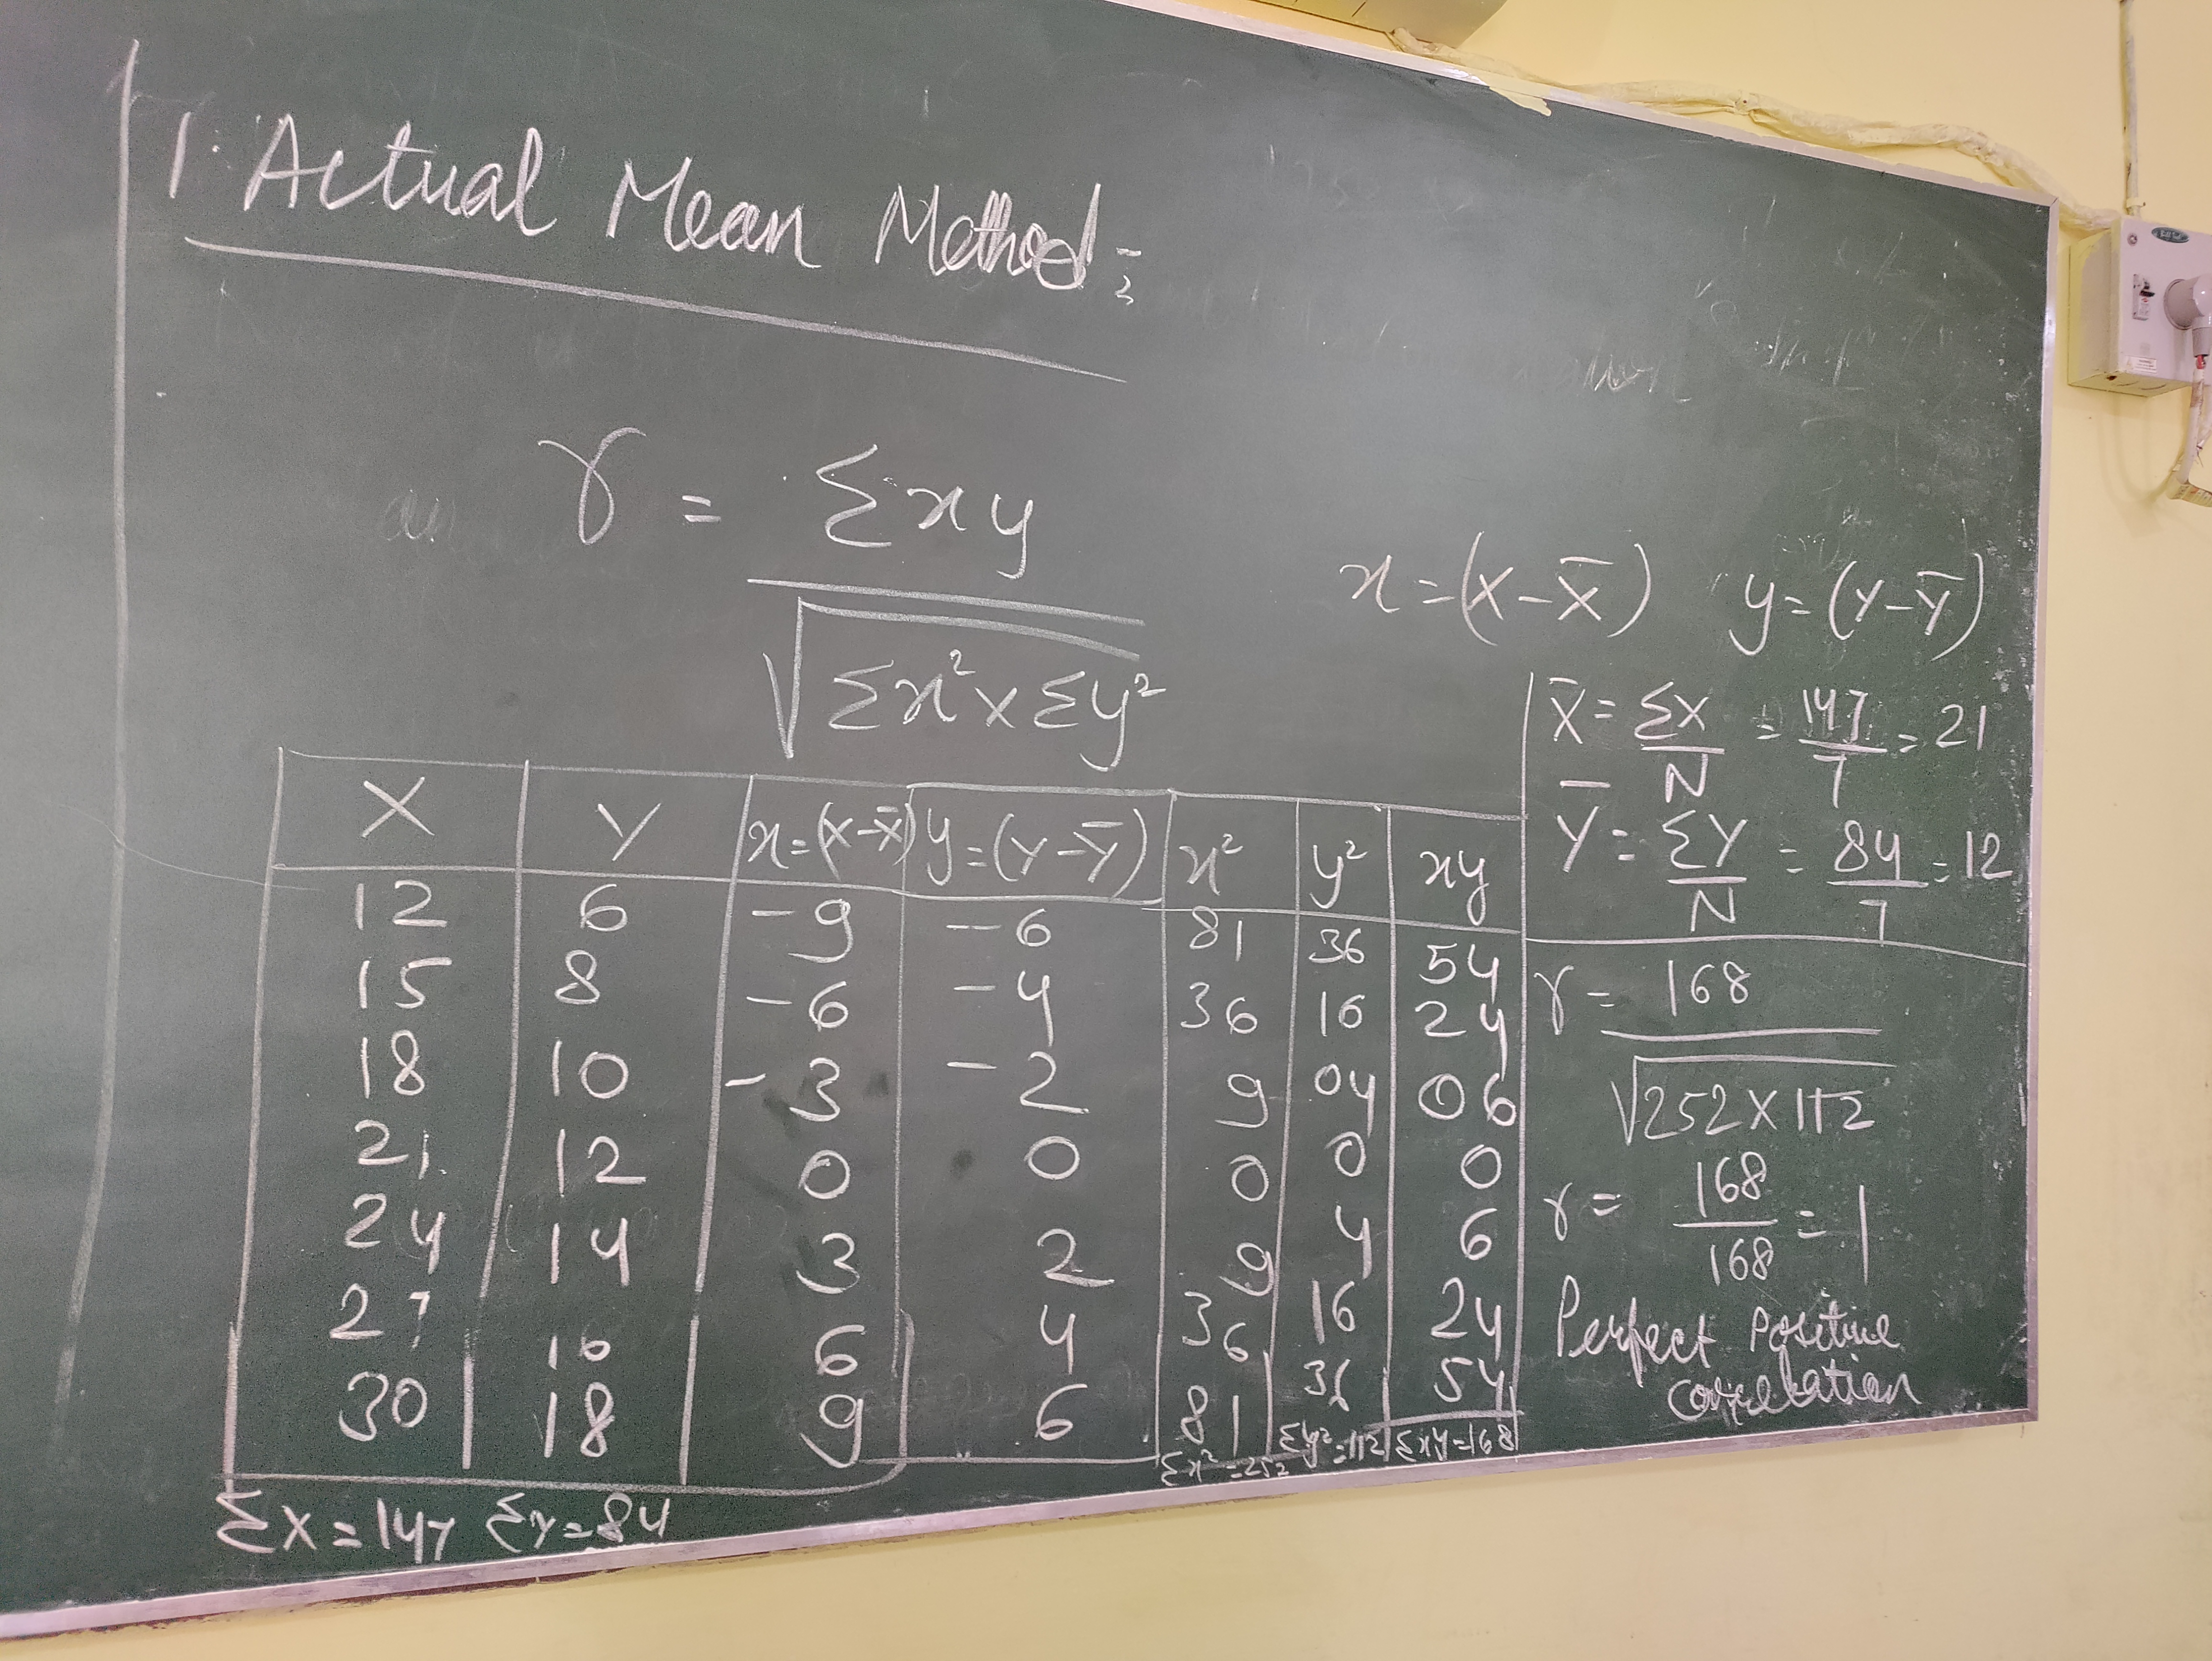 1. Actual Mean Method :-
r = Σxy / √Σx²×Σy²
x=(X-X̄) y=(Y-Ȳ)
X̄ = ΣX/N = 147/7 = 21
Ȳ = ΣY/N = 84/7 = 12
X Y x=(X-X̄) y=(Y-Ȳ) x² y² xy
12 6 -9 -6 81 36 54
15 8 -6 -4 36 16 24
18 10 -3 -2 9 04 06
21 12 0 0 0 0 0
24 14 3 2 9 4 6
27 16 6 4 36 16 24
30 18 9 6 81 36 54
ΣX=147 ΣY=84 Σx²=252 Σy²=112 Σxy=168
r = 168 / √252×112
r = 168/168 = 1
Perfect Positive
correlation